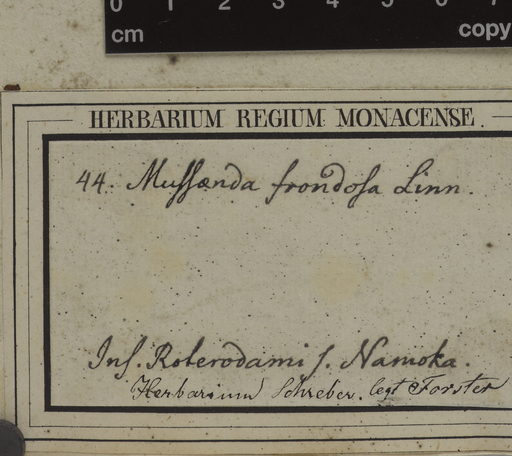 0 1 2 3 4 5 6 7
cm copy
HERBARIUM REGIUM MONACENSE.
44. Mussænda frondosa Linn.
Ins. Roterodami s. Namoka.
Herbarium Schreber. legt Forster